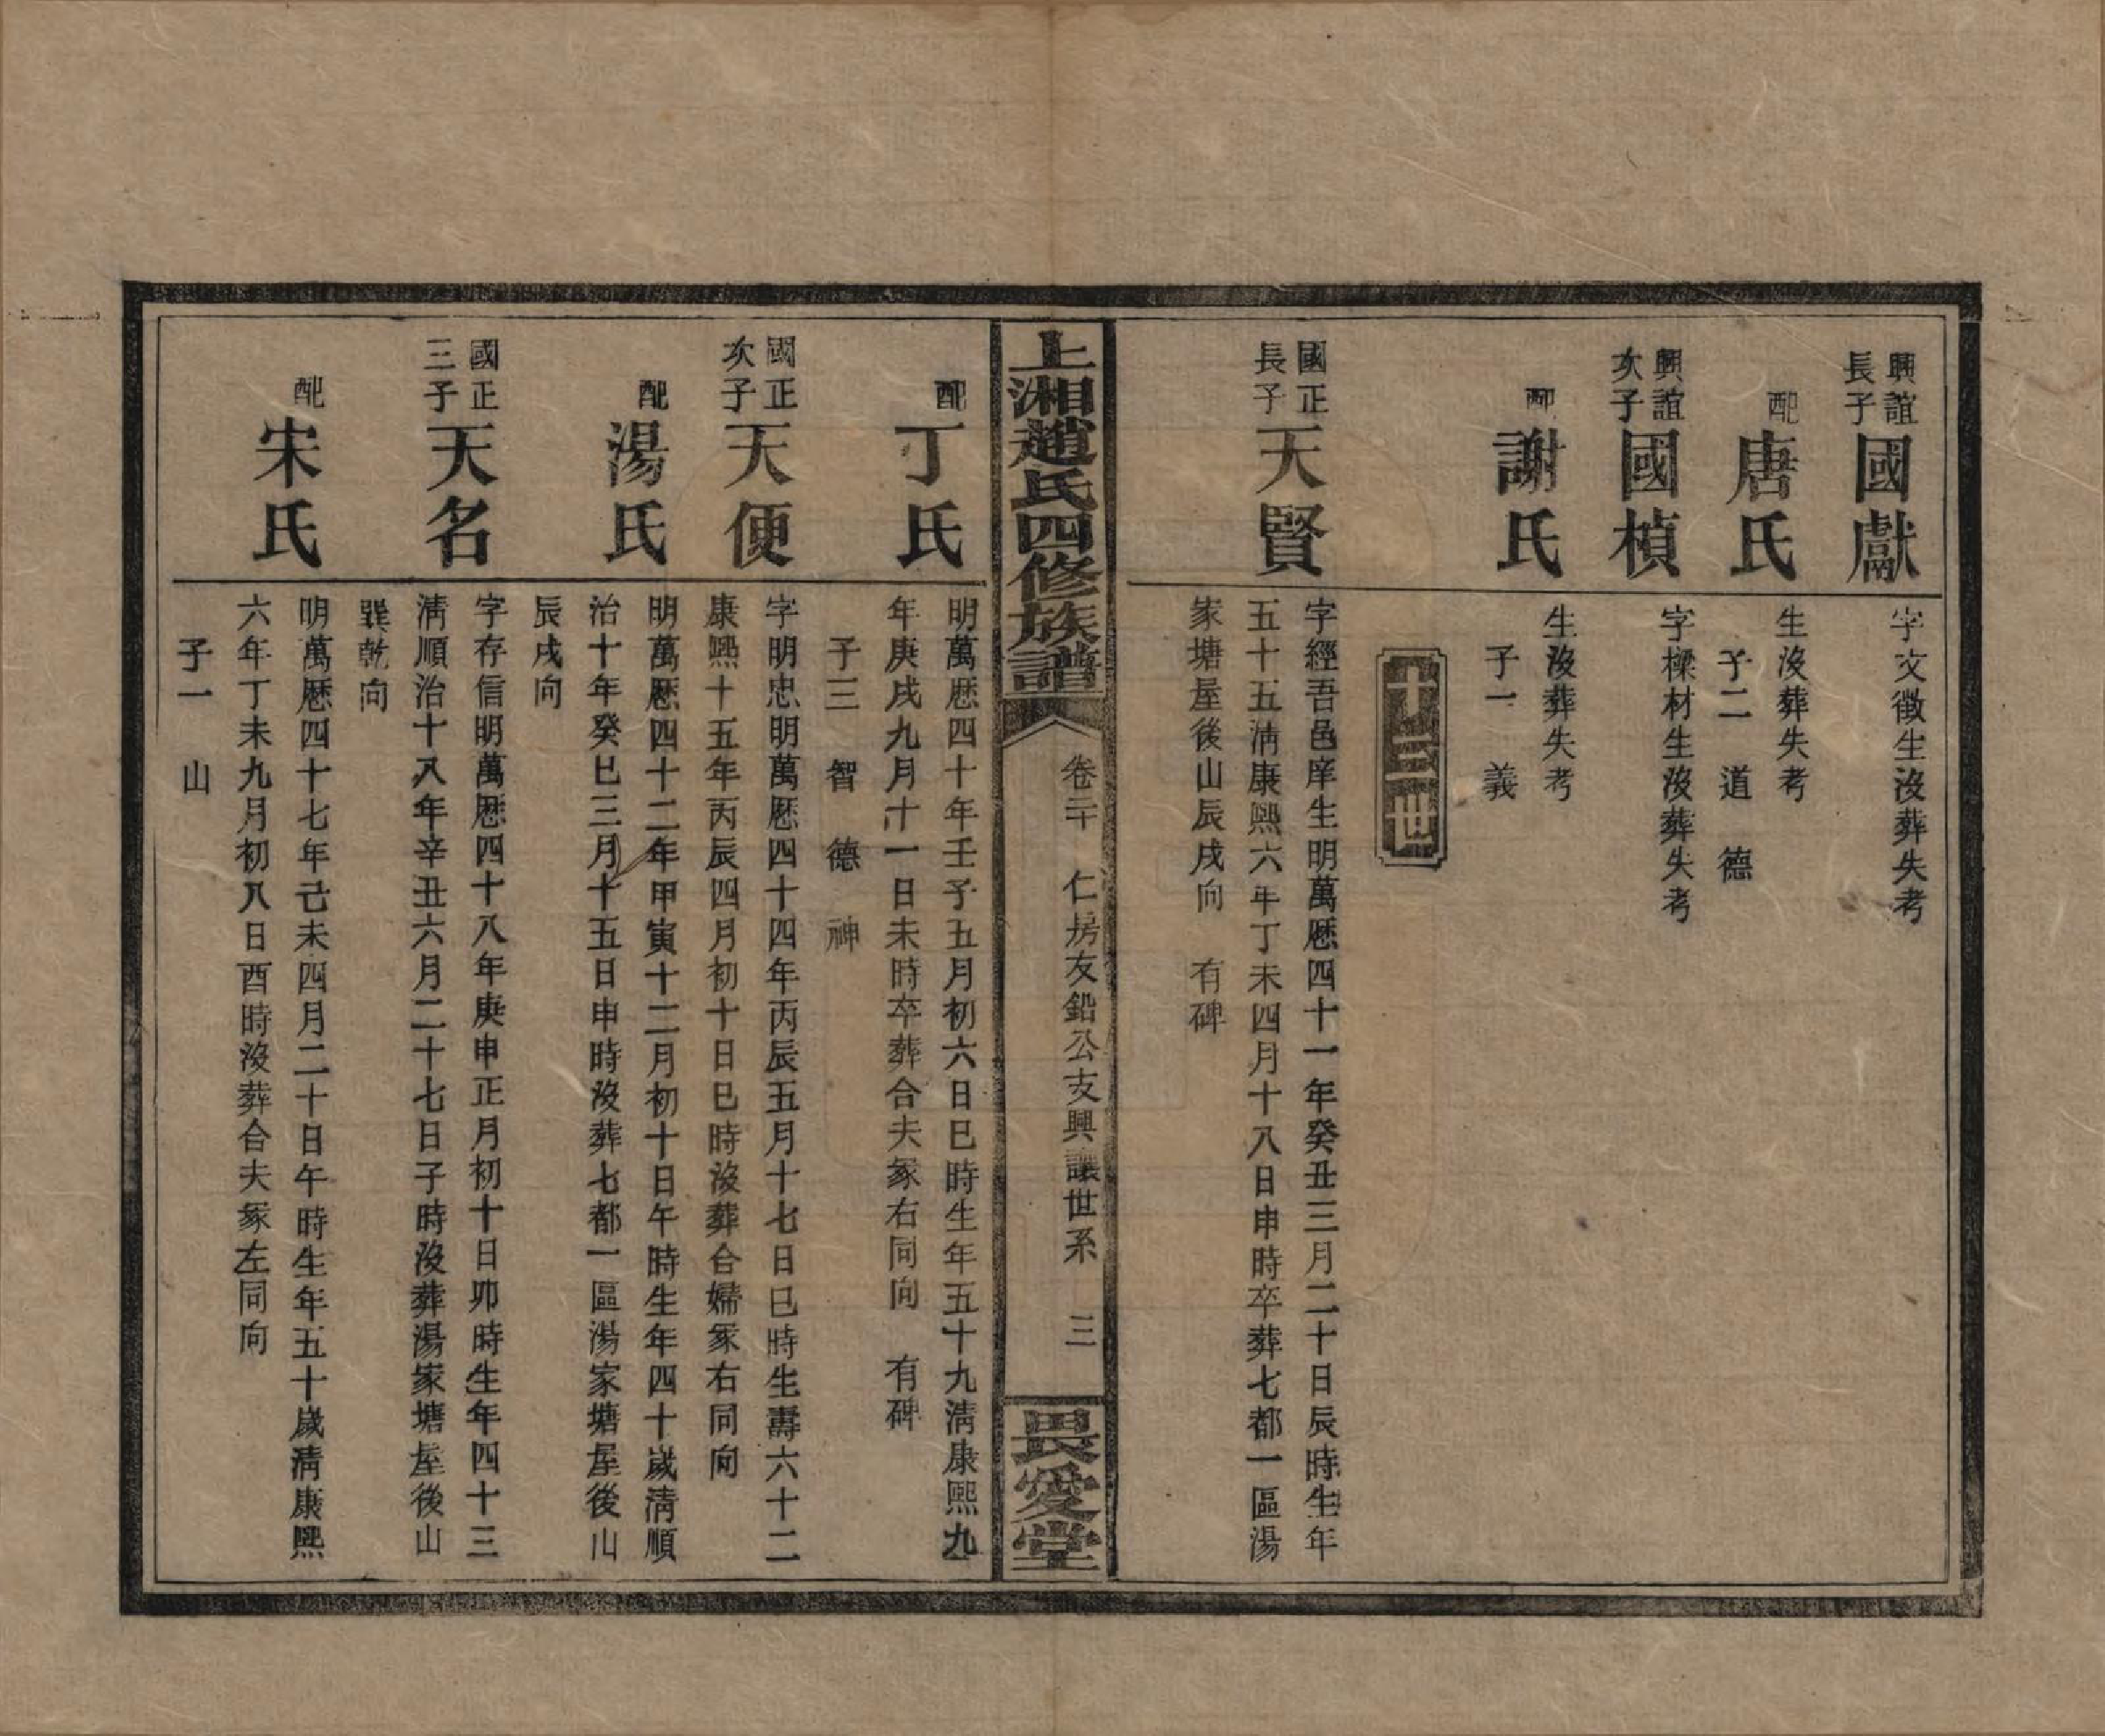 興誼
長子
國獻
字文徵生沒葬失考
配
唐氏
生沒葬失考
子二 道 德
興誼
次子
國楨
字樑材生沒葬失考
配
謝氏
生沒葬失考
子一 義
十三世
國正
長子
天賢
字經吾邑庠生明萬厯四十一年癸丑三月二十日辰時生年
五十五淸康熙六年丁未四月十八日申時卒葬七都一區湯
家塘屋後山辰戌向 有碑
上湘趙氏四修族譜
卷二十 仁房友鉛公支興讓世系 三
畏愛堂
配
丁氏
明萬厯四十年壬子五月初六日巳時生年五十九淸康熙九
年庚戌九月十一日未時卒葬合夫冢右同向 有碑
子三 智 德 神
國正
次子
天便
字明忠明萬厯四十四年丙辰五月十七日巳時生壽六十二
康熙十五年丙辰四月初十日巳時沒葬合婦冢右同向
配
湯氏
明萬厯四十二年甲寅十二月初十日午時生年四十歲淸順
治十年癸巳三月十五日申時沒葬七都一區湯家塘屋後山
辰戌向
國正
三子
天名
字存信明萬厯四十八年庚申正月初十日卯時生年四十三
淸順治十八年辛丑六月二十七日子時沒葬湯家塘屋後山
巽乾向
配
宋氏
明萬厯四十七年己未四月二十日午時生年五十歲淸康熙
六年丁未九月初八日酉時沒葬合夫冢左同向
子一 山